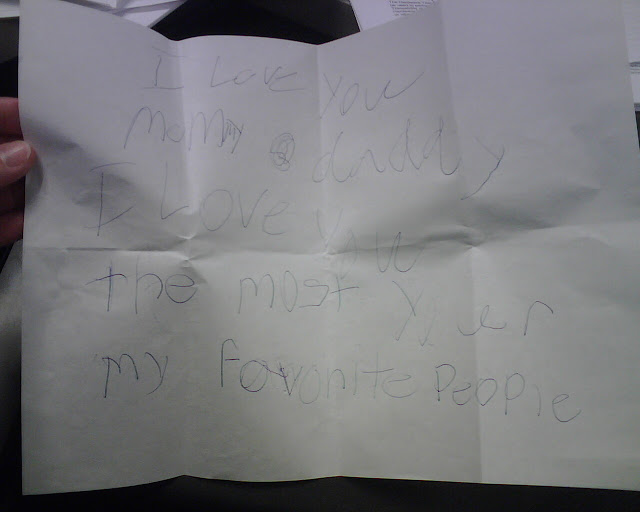 I Love you
Mommy & daddy
I Love you
the most your
my favorite People